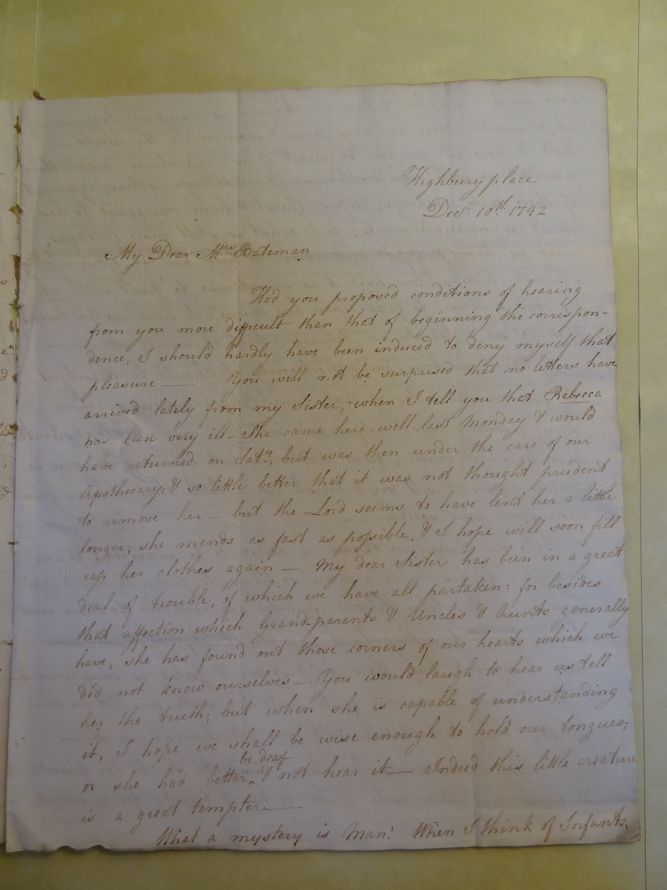 Highbury place
Decr. 10th. 1792
My Dear Mrs Bateman
Had you proposed conditions of hearing
from you more difficult than that of beginning the correspon-
dence, I should hardly have been induced to deny myself that
pleasure — You will not be surprised that no letters have
arrived lately from my Sister, when I tell you that Rebecca
has been very ill — She came here well last Monday & would
have returned on Saty. but was then under the care of our
Apothecary, & so little better that it was not thought prudent
to remove her — but the Lord seems to have lent her a little
longer; she mends as fast as possible, & I hope will soon fill
up her clothes again — My dear Sister has been in a great
deal of trouble, of which we have all partaken: for besides
that affection which Grandparents & Uncles & Aunts generally
have, she has found out those corners of our hearts which we
did not know ourselves — You would laugh to hear us tell
her the truth; but when she is capable of understanding
it, I hope we shall be wise enough to hold our tongues;
or she had better be deaf & not hear it — Indeed this little creature
is a great tempter —
What a mystery is Man! When I think of Infants,